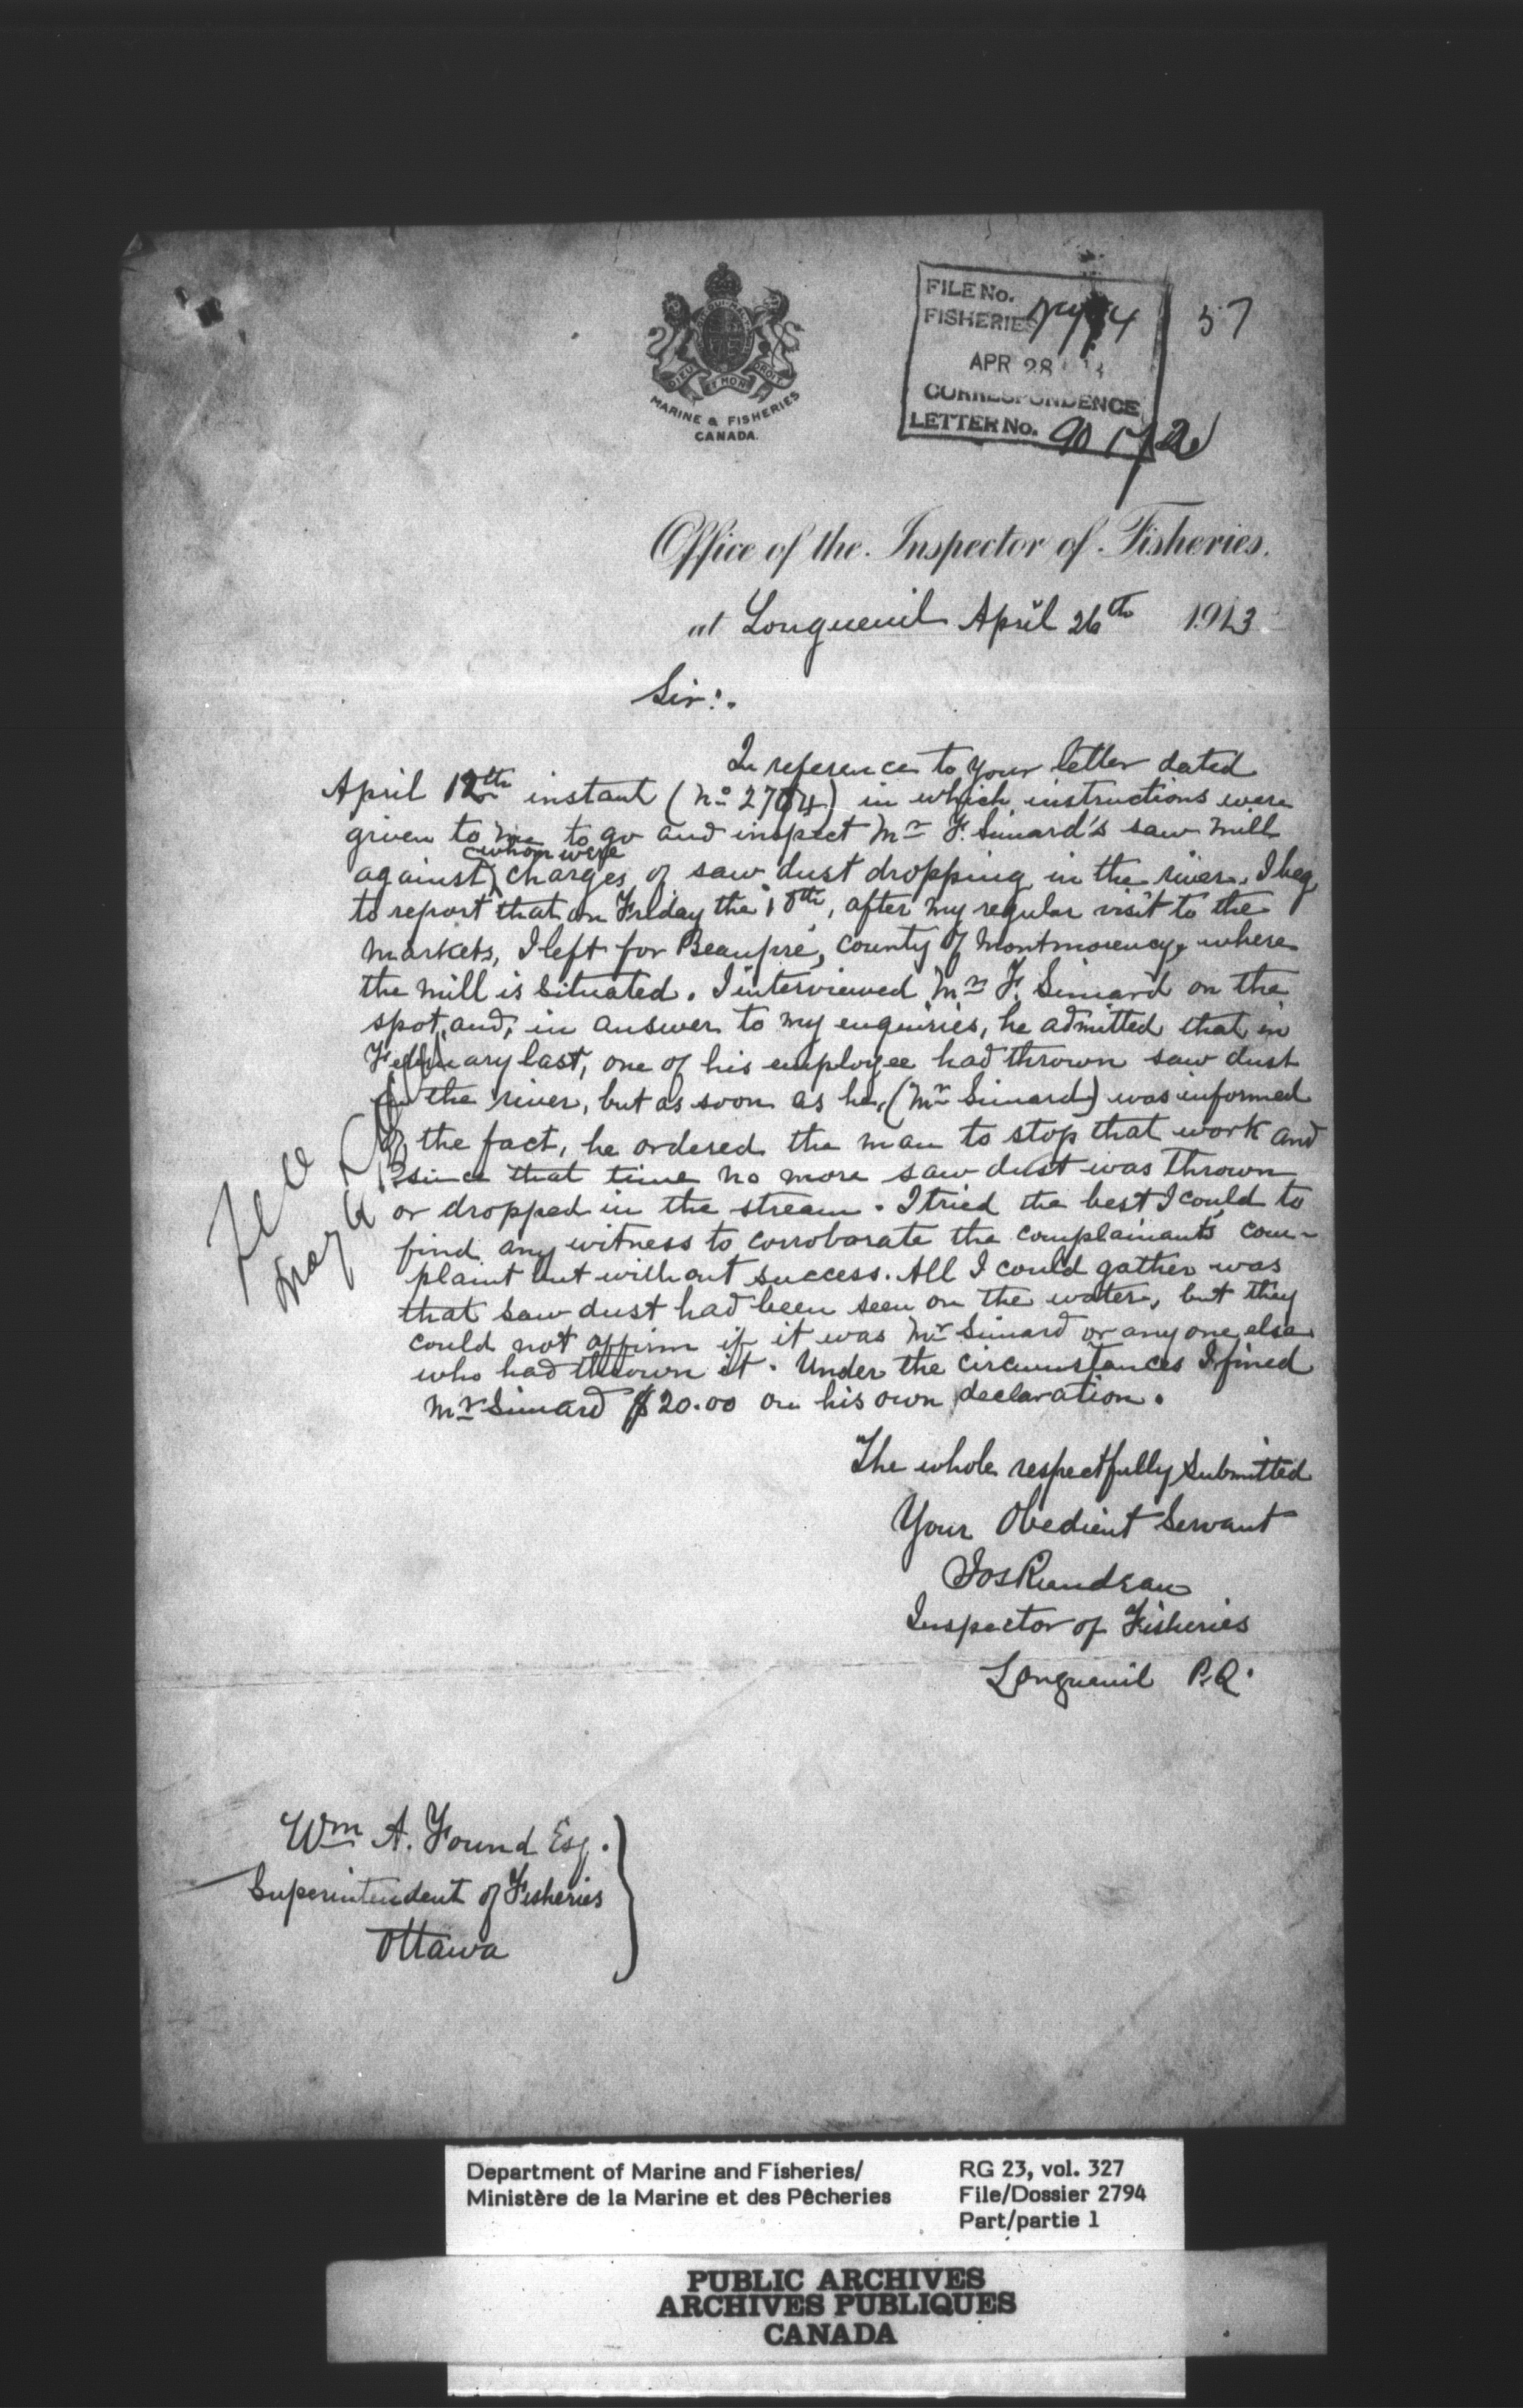 DIEU ET MON DROIT
MARINE & FISHERIES
CANADA.
FILE No.
FISHERIES
57
APR 28
CORRESPONDENCE
LETTER No.
Office of the Inspector of Fisheries.
at Longueuil April 26th 1913
Sir:.
In reference to your letter dated
April 12th instant (No 2794) in which instructions were
given to me to go and inspect Mr F. Simard's saw mill
against whom were charges of saw dust dropping in the river, I beg
to report that on Friday the 18th, after my regular visit to the
markets, I left for Beaupré, county of Montmorency, where
the mill is situated. I interviewed Mr F. Simard on the
spot, and, in answer to my enquiries, he admitted that in
February last, one of his employee had thrown saw dust
in the river, but as soon as he, (Mr Simard) was informed
of the fact, he ordered the man to stop that work and
since that time no more saw dust was thrown
or dropped in the stream. I tried the best I could to
find any witness to corroborate the complainant's com-
plaint but without success. All I could gather was
that saw dust had been seen on the water, but they
could not affirm if it was Mr Simard or any one else
who had thrown it. Under the circumstances I fined
Mr Simard $20.00 on his own declaration.
The whole respectfully submitted
Your Obedient Servant
Jos Riendeau
Inspector of Fisheries
Longueuil P.Q.
Wm A. Found Esq.
Superintendent of Fisheries
Ottawa
Department of Marine and Fisheries/
Ministère de la Marine et des Pêcheries
RG 23, vol. 327
File/Dossier 2794
Part/partie 1
PUBLIC ARCHIVES
ARCHIVES PUBLIQUES
CANADA